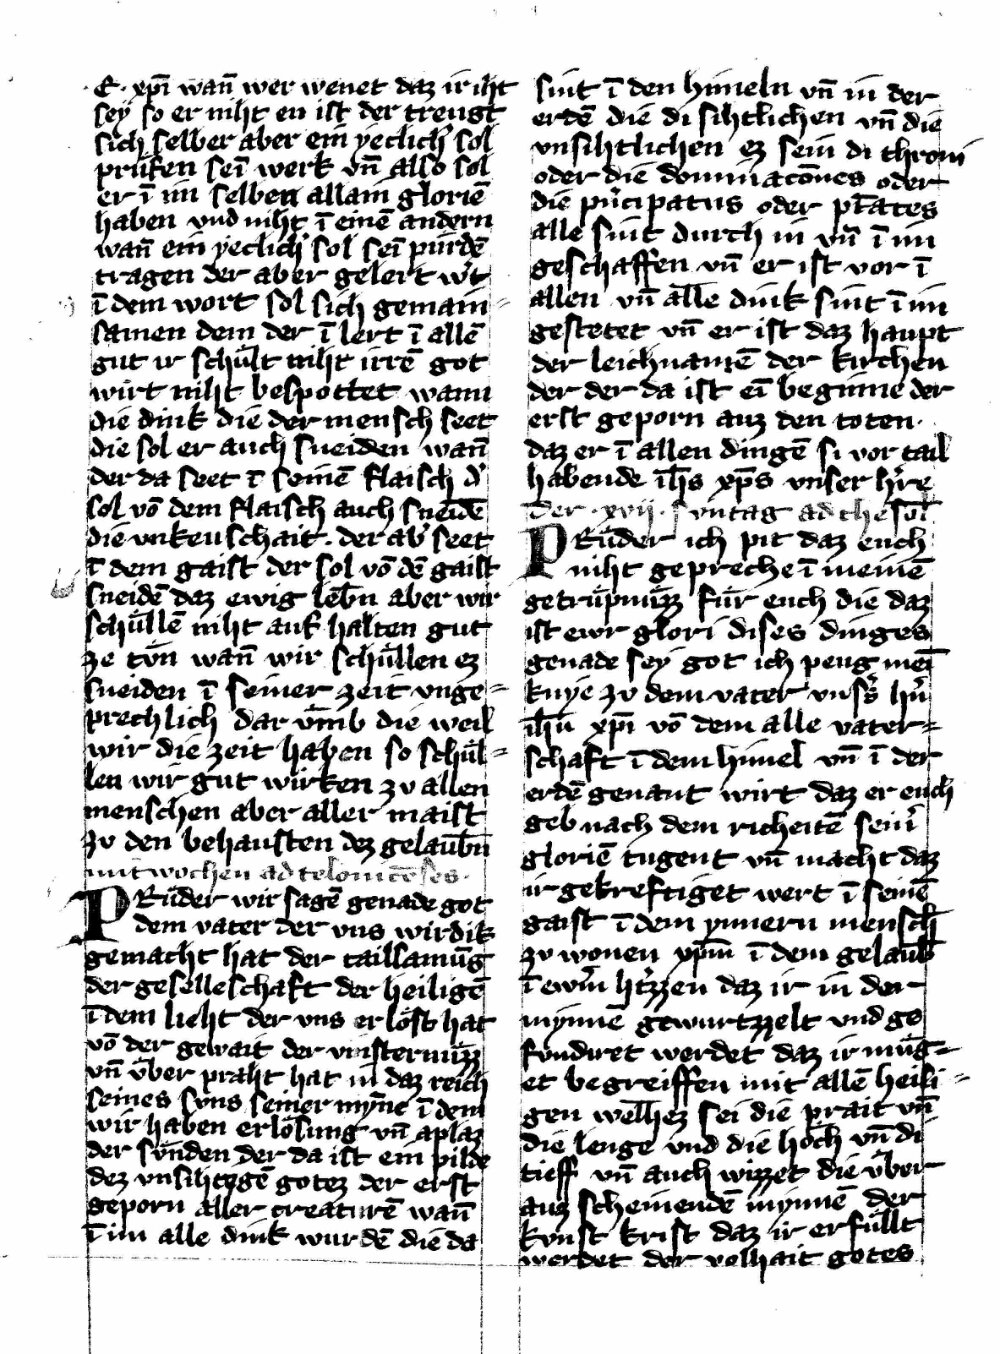 E · xp̄i wan̄ wer wenet daz ir iht
sey so er niht en ist der treugt
sich selber aber ein yeclich' sol
prüfen sein̄ werk vn̄ also sol
er ī im selben allain gloriē
haben vnd niht ī einē andern
wan̄ ein yeclich' sol sein̄ pürdē
tragen der aber gelert w't
ī dem wort sol sich gemain=
samen dem der ī lert ī allē
gut ir schült niht irrē got
wirt niht bespottet wann
die dink die der mensch seet
die sol er auch sneiden wan̄
der da seet ī seinē flaisch d'
sol vō dem flaisch auch sneidē
die vnkeuschait · der ab' seet
ī dem gaist der sol vō dē gaist
sneidē daz ewig lebn̄ aber wir
schüllē niht auf halten gut
ze tün wan̄ wir schüllen ez
sneiden ī seiner zeit vnge=
prechlich dar vm̄b die weil
wir die zeit haben so schül=
len wir gut würken zv allen
menschen aber aller maist
zv den behausten dez gelaubn̄
mitwochen ad teloniceses ·
PRüder wir sagē genade got
dem vater der vns wirdik
gemacht hat der taillamūg
der geselleschaft der heiligē
ī dem lieht der vns erlöst hat
vō der gewalt der vinsternüzz
vn̄ über praht hat in daz reich
seines svns seiner myn̄e ī dem
wir haben erlösung vn̄ aplaz
der sünden der da ist ein pilde
dez vnsihtegē gotez der erst
geporn aller creaturē wan̄
ī im alle dink wurdē die da
sint ī den himeln vn̄ in der
erdē die di sihtlichen vn̄ die
vnsihtlichen ez sein di throni
oder die dominacōnes oder
die p'ncipatus oder pt̄ates
alle sint durch in vn̄ ī im
geschaffen vn̄ er ist vor ī
allen vn̄ alle dink sint ī im
gestetet vn̄ er ist daz haupt
der leichnamē der kirchen
der der da ist ein̄ beginne der
erst geporn auz den toten ·
daz er ī allen dingē si vor tail
habende ih̄s xp̄s vnser h're
der · xvii · svntag ad thesoł
PRüder ich pit daz euch
niht gepreche ī meinē
getrüpnüzz für euch die daz
ist ewr glori dises dinges
genade sey got ich peug mein̄
knye zv dem vater vns's h'n
ih̄u xp̄i vō dem alle vater=
schaft ī dem himel vn̄ ī der
erdē genant wirt daz er euch
geb nach dem richeitē sein'
gloriē tugent vn̄ macht daz
ir gekreftiget wert ī seinē
gaist ī dem ynnern mensch
zv wonen xp̄m ī dem gelaub̄
ī ew'm h'tzzen daz ir in der
mynnē gewurtzzelt vnd ge
fundiret werdet daz ir müg=
et begreiffen mit allē heili=
gen welhez sei die prait vn̄
die lenge vnd die höch vn̄ di
tieff vn̄ auch wizzet die über
auz scheinendē mynnē der
kvnst krist daz ir erfüllt
werdet der volhait gotes